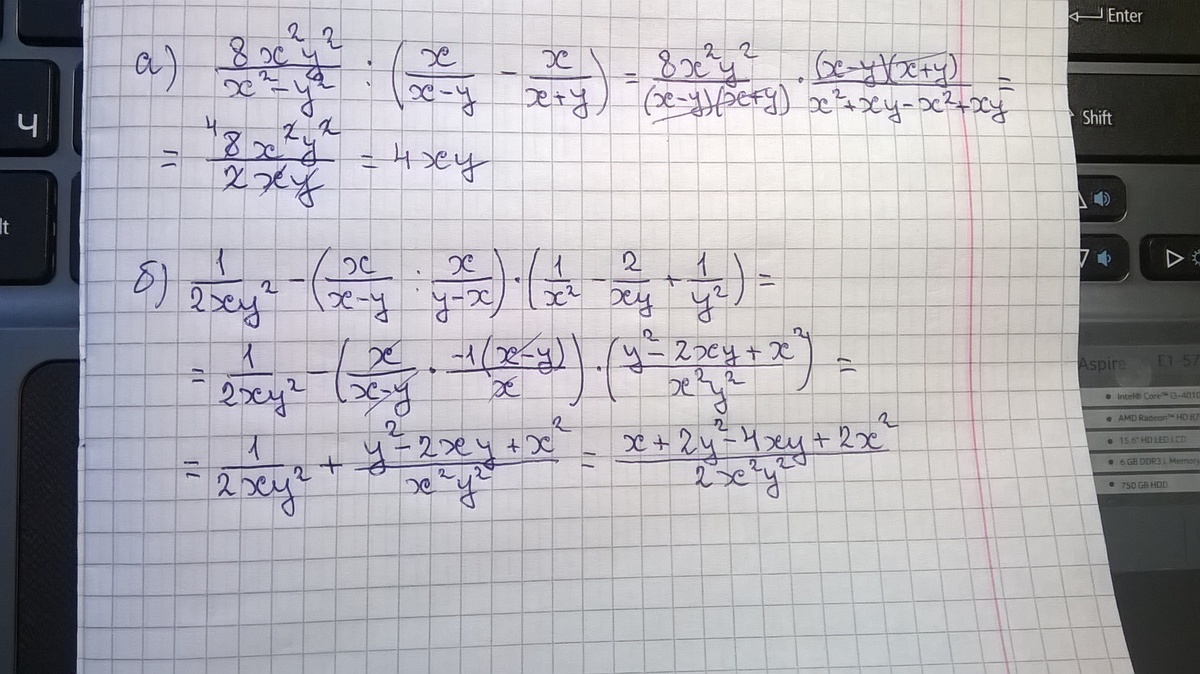 а) 8x²y²/(x²-y²) : (x/(x-y) - x/(x+y)) = 8x²y²/((x-y)(x+y)) · (x-y)(x+y)/(x²+xy-x²+xy) =
= ⁴8x²y²/2xy = 4xy
б) 1/2xy² - (x/(x-y) : x/(y-x)) · (1/x² - 2/xy + 1/y²) =
= 1/2xy² - (x/(x-y) · -1(x-y)/x) · ((y²-2xy+x²)/x²y²) =
= 1/2xy² + (y²-2xy+x²)/x²y² = (x+2y²-4xy+2x²)/2x²y²
Enter
Ч
Shift
lt
Aspire E1-57
Intel® Core™ i3-4010
AMD Radeon™ HD 87
15.6" HD LED LCD
6 GB DDR3 L Memory
750 GB HDD